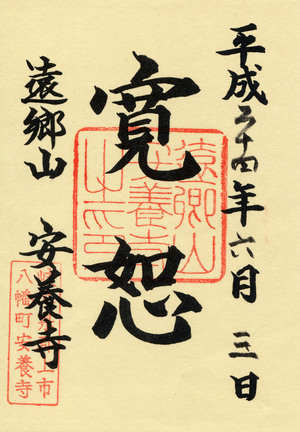 平成二十四年六月三日
寛恕
遠郷山
安養寺
遠郷山
安養寺
之印
上市
八幡町安養寺